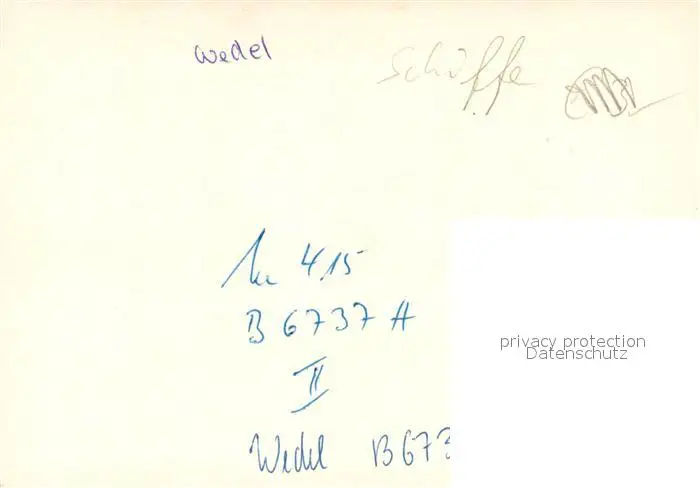 Wedel
Schiffe
4.15
B 6737 A
II
Wedel B673
privacy protection
Datenschutz